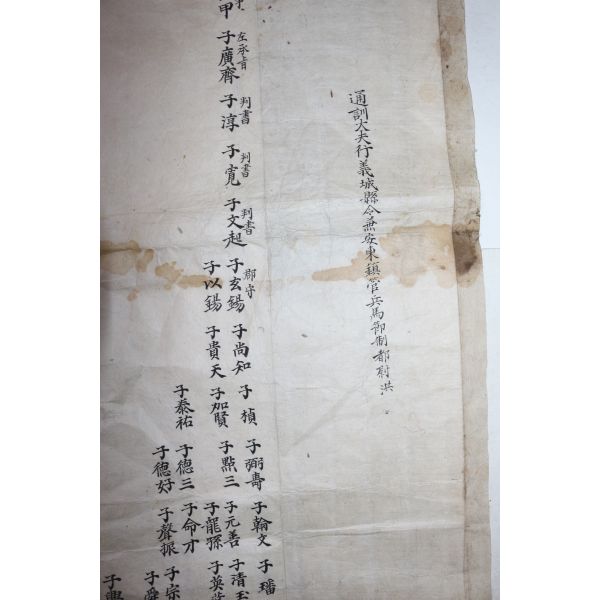 通訓大夫行義城縣令兼安東鎭管兵馬節制都尉洪
甲
左承旨
子廣齊
判書
子淳
判書
子寬
判書
子文起
郡守
子玄錫
子以錫
子尚知
子貴天
子楨
子加賢
子泰祐
子弼壽
子點三
子德三
子德好
子翰文
子元善
子龍孫
子命才
子聲振
子璠
子清玉
子英
子宗
子舜
子興